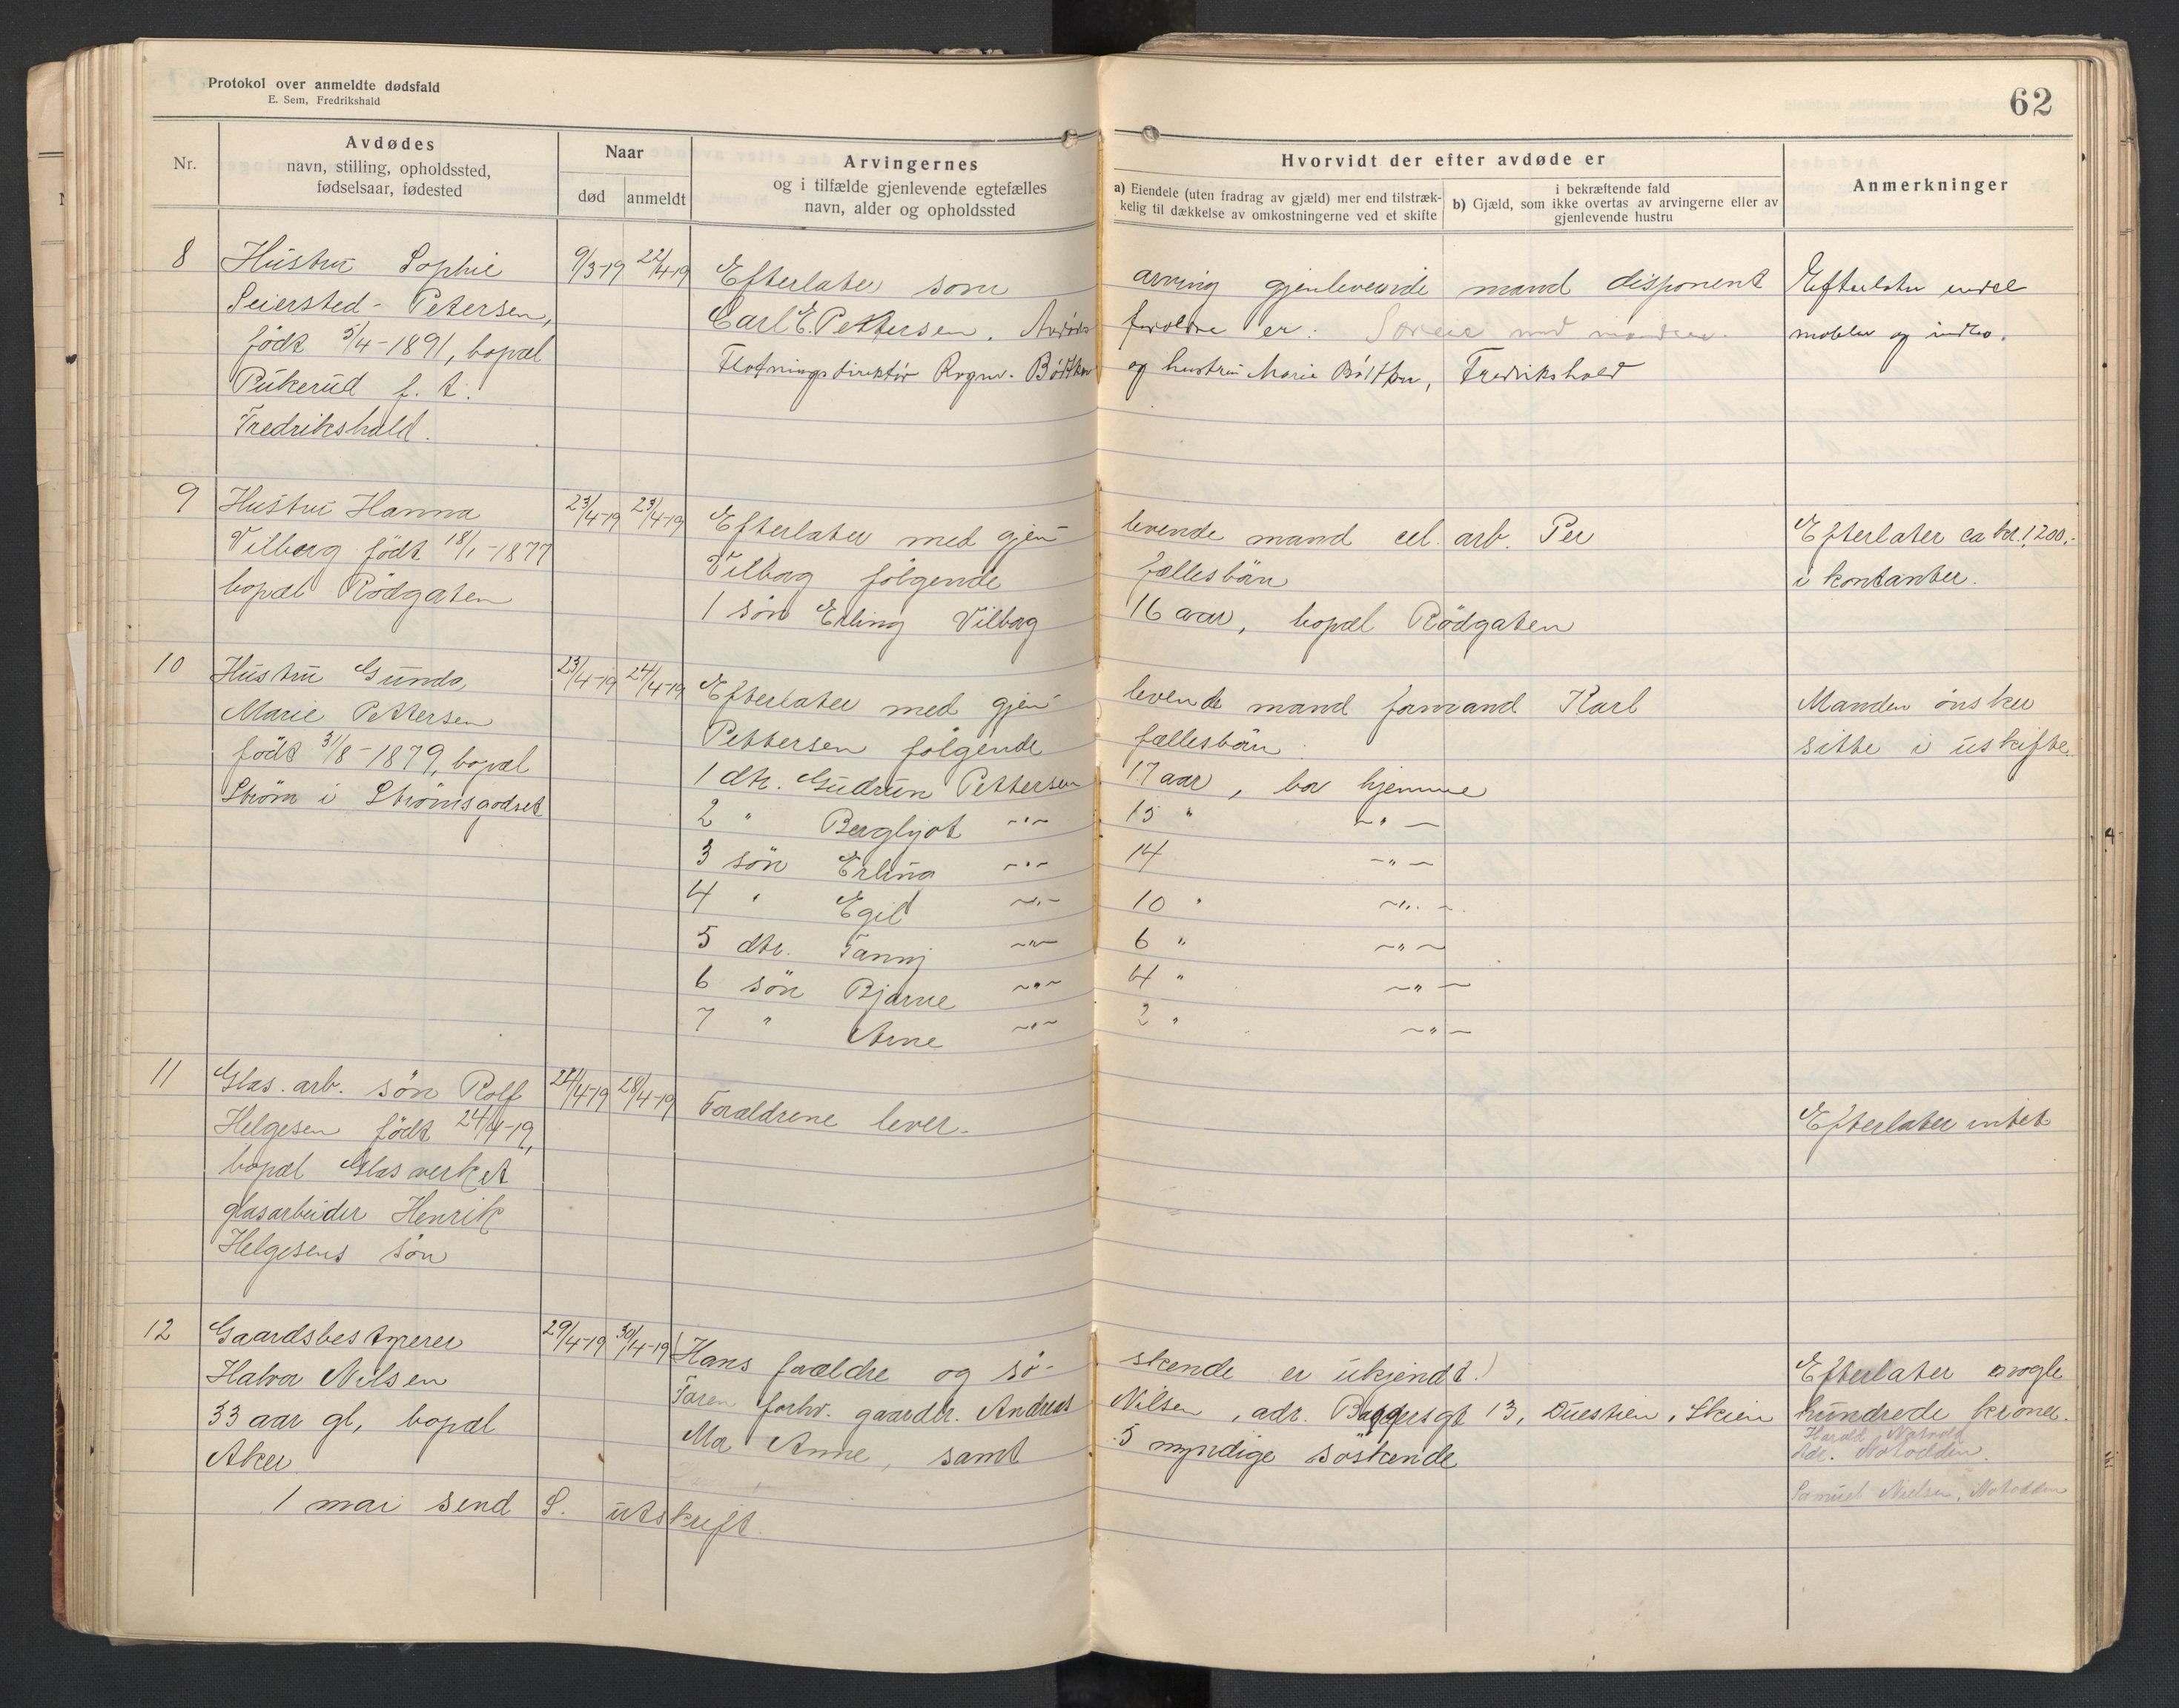 Protokol over anmeldte dødsfald
E. Sem, Fredrikshald
62
Nr.
Avdødes
navn, stilling, opholdssted,
fødselsaar, fødested
Naar
død
anmeldt
Arvingernes
og i tilfælde gjenlevende egtefælles
navn, alder og opholdssted
Hvorvidt der efter avdøde er
a) Eiendele (uten fradrag av gjæld) mer end tilstræk-
kelig til dækkelse av omkostningerne ved et skifte
i bekræftende fald
b) Gjæld, som ikke overtas av arvingerne eller av
gjenlevende hustru
Anmerkninger
8 Hustru Sophie 9/3-19 22/4-19 Efterlater som arving gjenlevende mand disponent Efterlater endel
Seiersted-Petersen, Carl E. Pettersen. Avdødes forældre er: møbler og indbo.
født 5/4-1891, bopæl Fløtningsdirektør Ragnv. Bøttker og hustru Marie Bøttker, Fredrikshald
Pukerud f. t.
Fredrikshald.
9 Hustru Hanna 23/4-19 23/4-19 Efterlater med gjenlevende mand cel. arb. Per Efterlater ca kr. 1200.-
Vilborg født 18/1-1877 Vilborg følgende fællesbørn i kontanter.
bopæl Rødgaten 1 søn Erling Vilborg 16 aar, bopæl Rødgaten
10 Hustru Gunda 23/4-19 24/4-19 Efterlater med gjenlevende mand formand Karl Manden ønsker
Marie Pettersen Pettersen følgende fællesbørn: sitte i uskifte.
født 31/8-1879, bopæl 1 dtr. Gudrun Pettersen 17 aar, bor hjemme
Strøm i Strømsgodset 2 " Bergljot -"- 15 " -"-
3 søn Erling -"- 14 -"-
4 " Egil -"- 10 " -"-
5 dtr. Fanny -"- 6 " -"-
6 søn Bjarne -"- 4 " -"-
7 " Arne -"- 2 " -"-
11 Glas. arb. søn Rolf 24/4-19 28/4-19 Forældrene lever. Efterlater intet
Helgesen født 24/4-19,
bopæl Glasverket
glasarbeider Henrik
Helgesens søn
12 Gaardsbestyrer 29/4-19 30/4-19 (Hans forældre og søskende er ukjendt.) Efterlater nogle
Halvor Nilsen Faren forhv. gaardbr. Andreas Nilsen, adr. 13, Duestien, Skien hundrede kroner.
33 aar gl, bopæl Mor Anne, samt 5 myndige søskende Harald
Aker Adr. Notodden.
1 mai send S. utskrift. Samuel Nielsen, Notodden